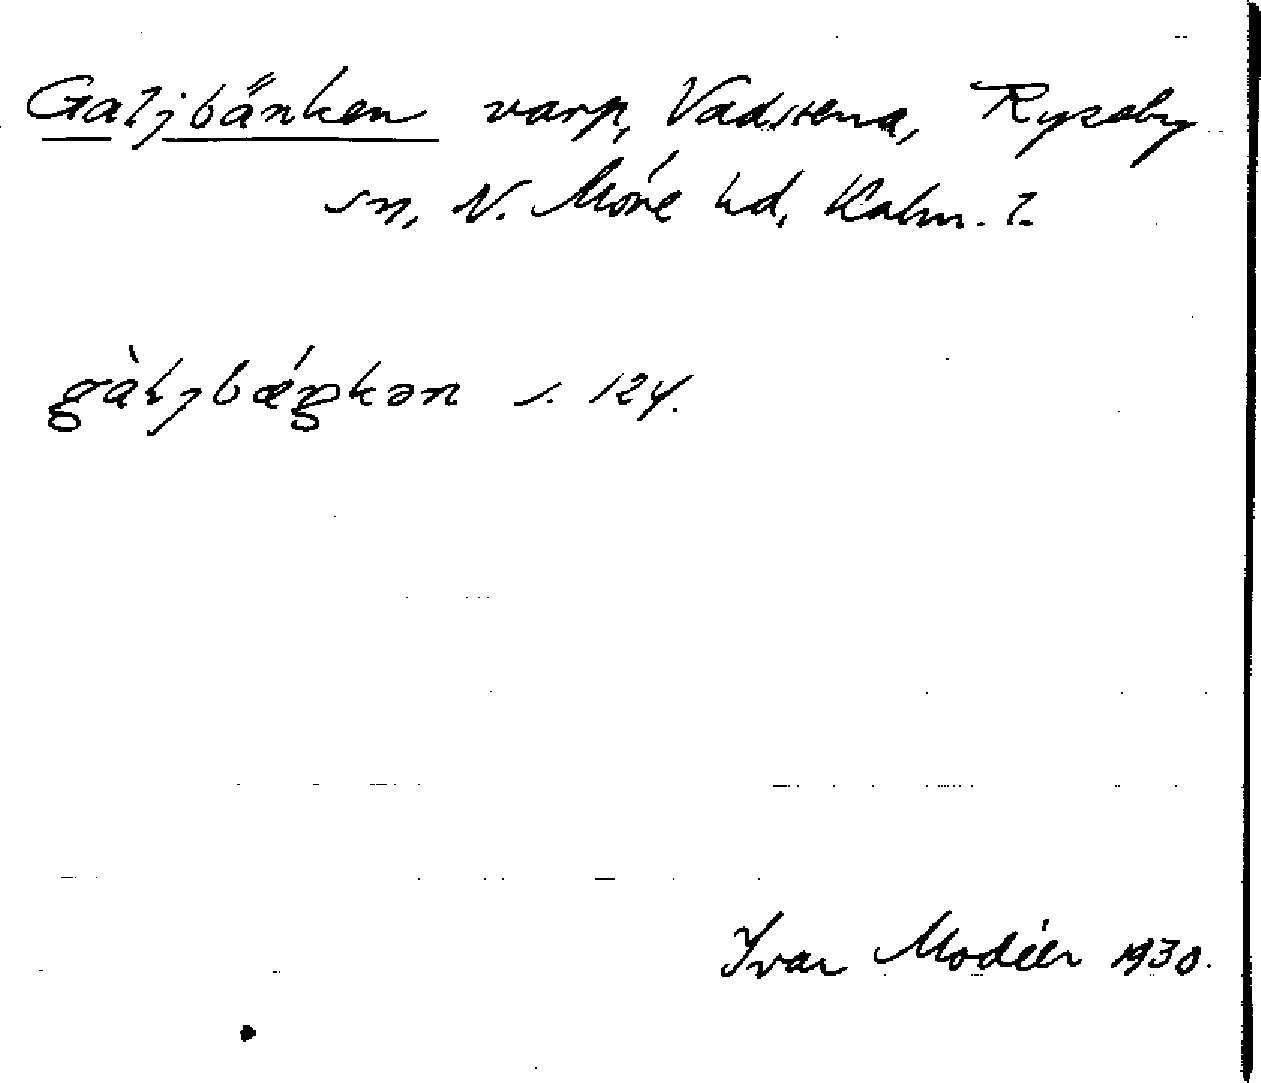 Galjbänken varp, Vadstena, Ryssby
sn, N. Möre hd, Kalm. l.
gàljbǽŋkən s. 124.
Ivar Modéer 1930.